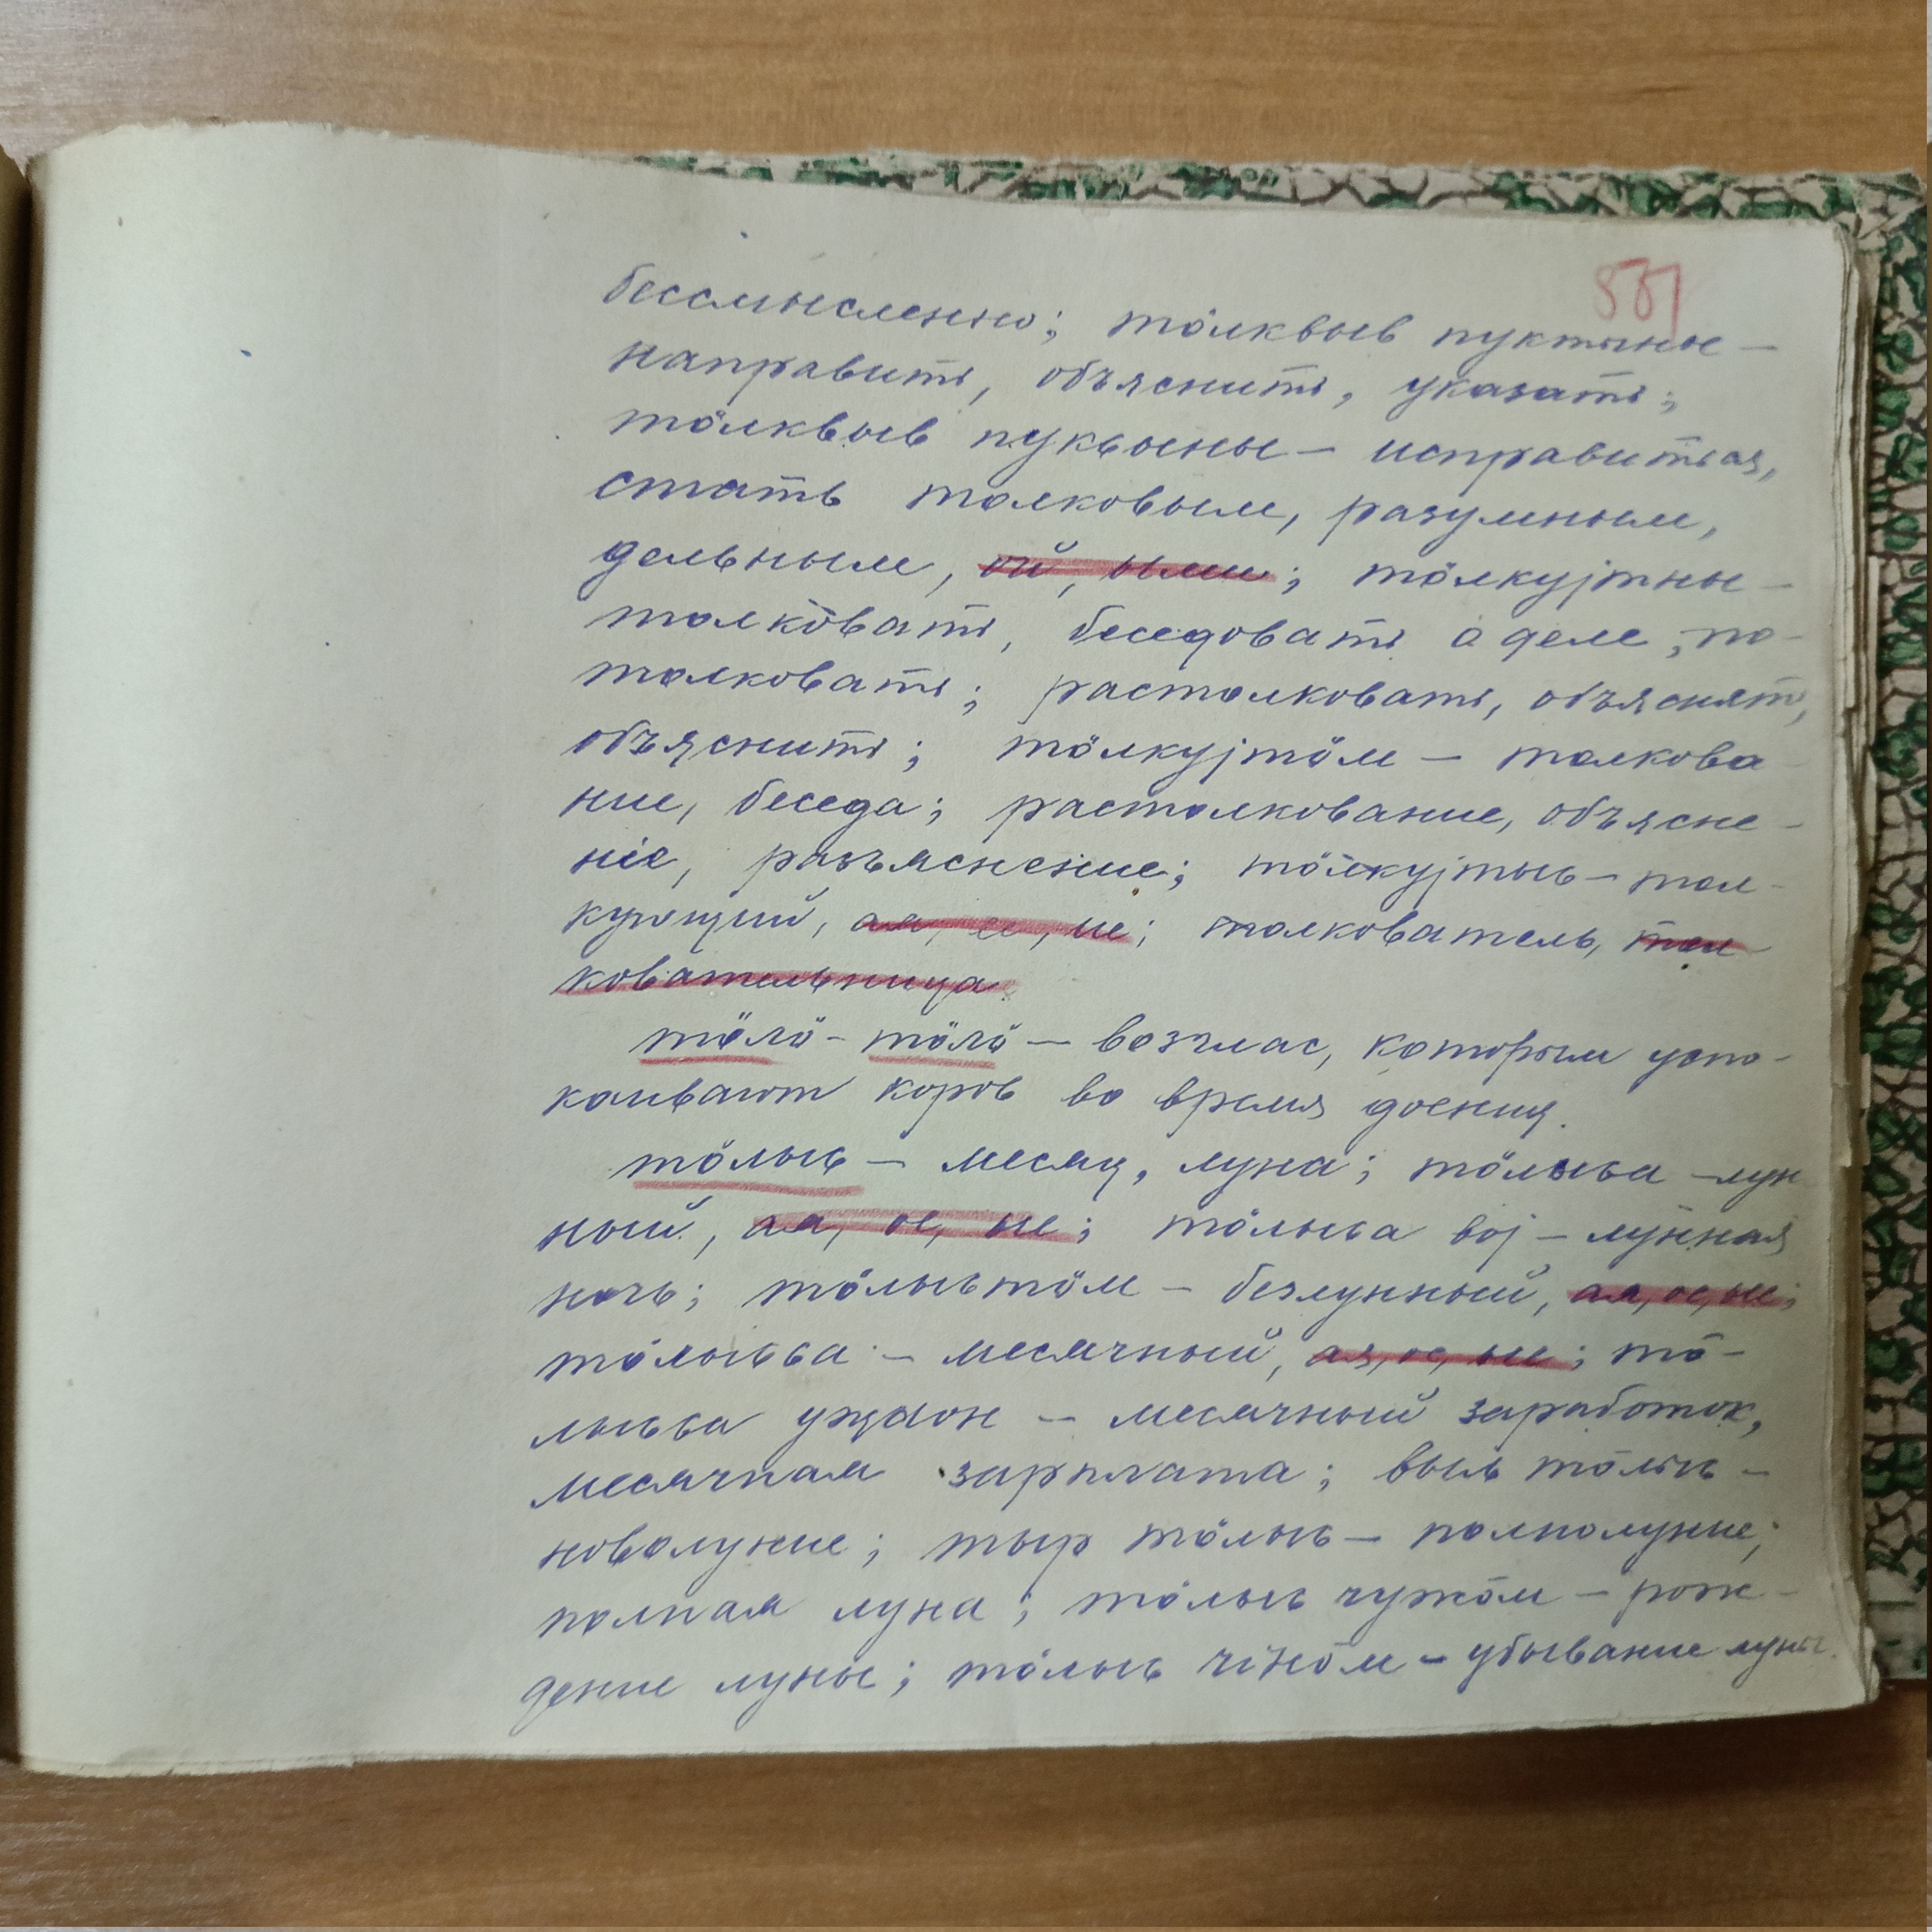 881
бессмысленно; тӧлквыв пуктыны —
направить, объяснить, указать;
тӧлквыв пукҍыны — исправиться,
стать толковым, разумным,
дельным, ой, ыми; тӧлкујтны —
толковать, беседовать о деле, по-
толковать; растолковать, объяснять,
объяснить; тӧлкујтӧм — толкова-
ние, беседа; растолкование, объясне-
ніе, разъяснение; тӧлкујтыҍ — тол-
кующий, ая, ее, ие; толкователь, тол-
ковательница.
тӧлӧ-тӧлӧ — возглас, которым успо-
каивают коров во время доения.
тӧлыҍ — месяц, луна; тӧлыҍа — лун-
ный, ая, ое, ые; тӧлыҍа вој — лунная
ночь; тӧлыҍтӧм — безлунный, ая, ое, ые;
тӧлыҍҍа — месячный, ая, ое, ые; тӧ-
лыҍҍа уждон — месячный заработок,
месячная зарплата; выль тӧлыҍ —
новолуние; тыр тӧлыҍ — полнолуние;
полная луна; тӧлыҍ чужӧм — рож-
дение луны; тӧлыҍ чінӧм — убывание луны.